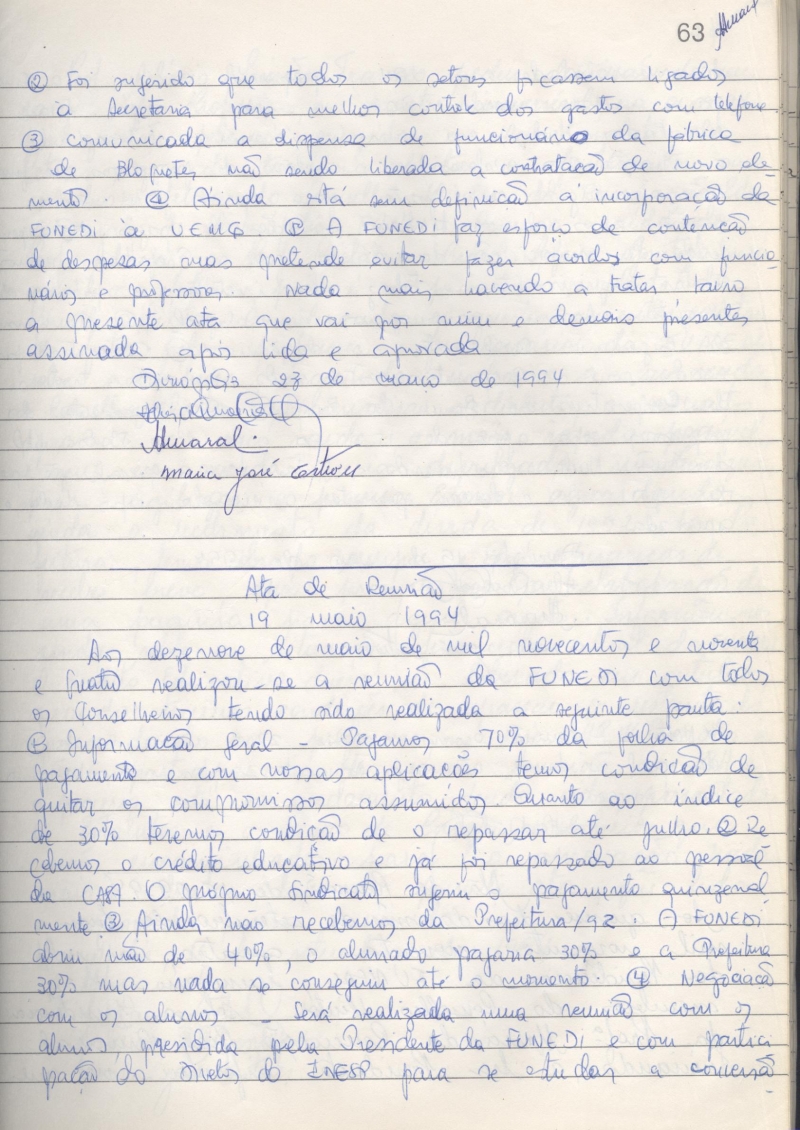 63
Amaral
② Foi sugerido que todos os setores ficassem ligados
a Secretaria para melhor controle dos gastos com telefone
③ comunicada a dispensa de funcionário da fábrica
de Bloquetes, não sendo liberada a contratação de novo ele-
mento. ④ Ainda está sem definição a incorporação da
FUNEDI à UEMG. ⑤ A FUNEDI faz esforço de contenção
de despesas mas pretende evitar fazer acordos com funcio
nários e professores. Nada mais havendo a tratar lavro
a presente ata que vai por mim e demais presentes
assinada após lida e aprovada
Divinópolis 23 de março de 1994
Amaral.
Maria José
Ata de Reunião
19 maio 1994
Aos dezenove de maio de mil novecentos e noventa
e quatro realizou-se a reunião da FUNEDI com todos
os Conselheiros tendo sido realizada a seguinte pauta:
① Informação geral - Pagamos 70% da folha de
pagamento e com nossas aplicações temos condição de
quitar os compromissos assumidos. Quanto ao índice
de 30% teremos condição de o repassar até julho. ② Re
cebemos o crédito educativo e já foi repassado ao pessoal
da CASA. O próprio Sindicato sugeriu o pagamento quinzenal
mente. ③ Ainda não recebemos da Prefeitura/92. A FUNEDI
abriu mão de 40%, o alunado pagaria 30% e a Prefeitura
30% mas nada se conseguiu até o momento. ④ Negociação
com os alunos - Será realizada uma reunião com os
alunos, presidida pela Presidente da FUNEDI e com partici
pação do Diretor do INESP para se estudar a concessão